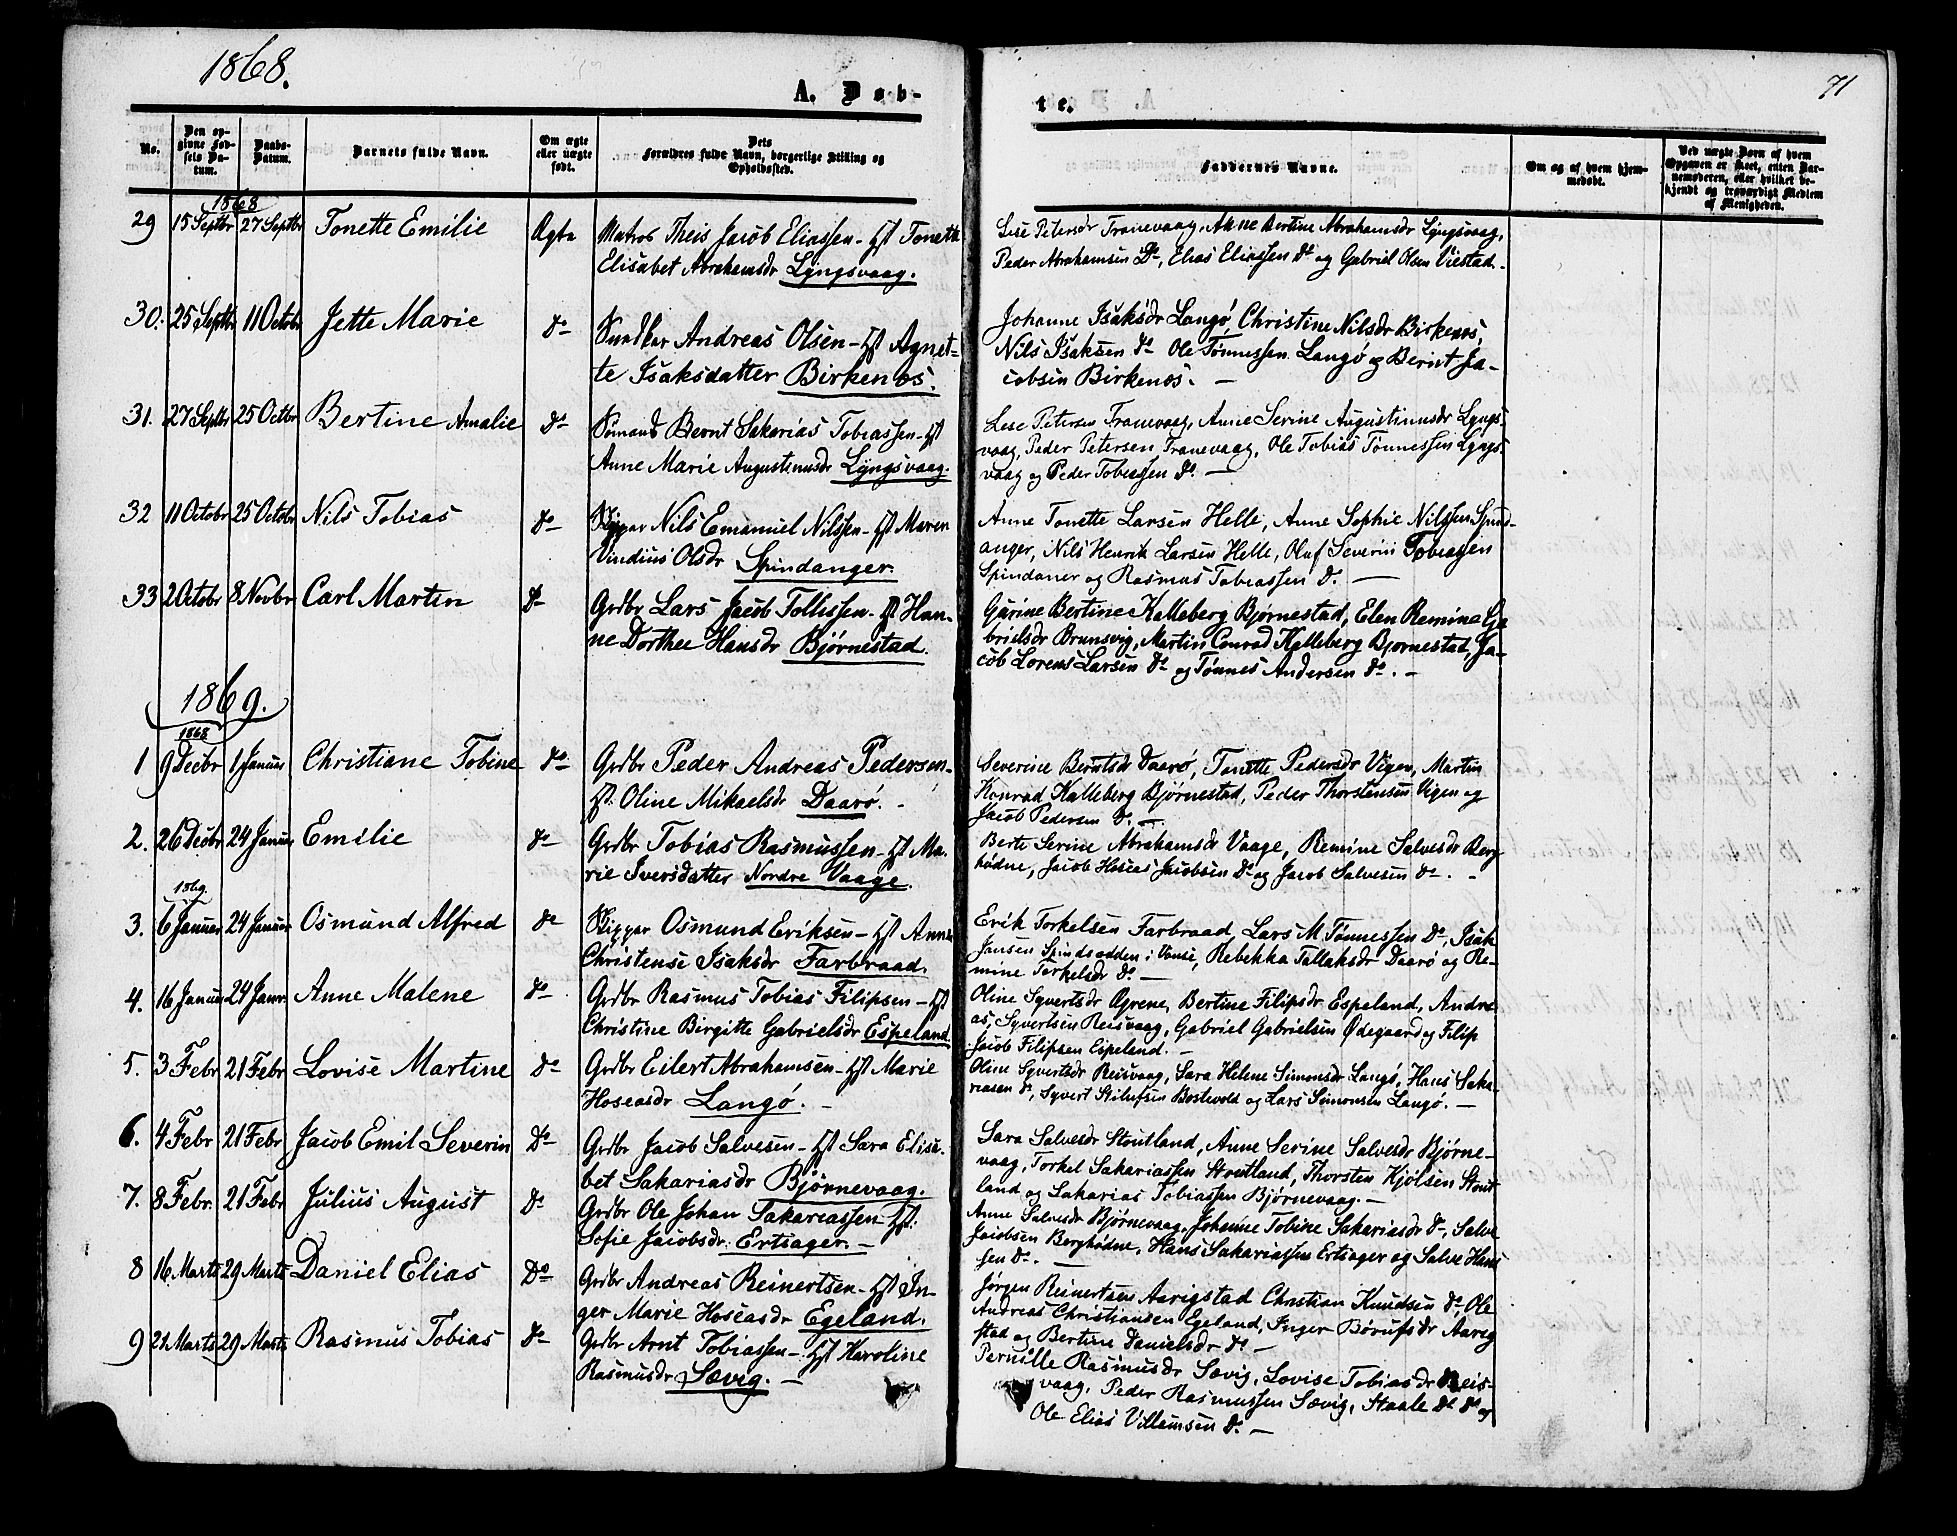 1868.
A. Døb-
te.
71
No.
Den op-
givne Fød-
sels Da-
tum.
Daabs-
Datum.
Barnets fulde Navn.
Om ægte
eller uægte
født.
Dets
Forældres fulde Navn, borgerlige Stilling og
Opholdssted.
Faddernes Navne.
Om og af hvem hjem-
medøbt.
Ved uægte Børn af hvem
Opgaven er skeet, enten Bar-
nemoderen, eller hvilket be-
kjendt og troværdigt Medlem
af Menigheden.
1868
29 15 Septbr 27 Septbr Tonette Emilie Ægte Matros Theis Jacob Eliassen - Hst Tonette
Elisabet Abrahamsdr Lyngsvaag.
Lise Petersdr Tranevaag, Anne Bertine Abrahamsdr Lyngsvaag,
Peder Abrahamsen Do, Elias Eliassen Do og Gabriel Olsen Viestad.
30. 25 Septbr 11 Octobr Jette Marie Do Andreas Olsen - Hst Agnet-
te Isaksdatter Birkenæs.
Johanne Isaksdr Langø, Christine Nilsdr Birkenæs,
Nils Isaksen Do Ole Tønnessen Langø og Bernt Ja-
cobsen Birkenæs. —
31. 27 Septbr 25 Octbr Bertine Amalie Do Sømand Bernt Sakarias Tobiassen - Hst
Anne Marie Augustinusdr Lyngsvaag.
Lese Petersen Tranevaag, Anne Serine Augustinusdr Lyngs-
vaag, Peder Petersen Tranevaag, Ole Tobias Tønnessen Lyngs-
vaag og Peder Tobiassen Do. —
32 11 Octobr 25 Octobr Nils Tobias Do Skipper Nils Emanuel Nilssen - Hst Maren
Olsdr Spindanger.
Anne Tonette Larsen Helle, Anne Sophie Nilssen Spind-
anger, Nils Henrik Larsen Helle, Oluf Severin Tobiassen
Spindaner og Rasmus Tobiassen Do. —
33 2 Octobr 8 Novbr Carl Martin Do Grdbr Lars Jacob Tollissen - Hst Han-
ne Dorthee Hansdr Bjørnestad.
Gurine Bertine Kalleberg Bjørnestad, Elen Remine Ga
brielsdr Brunsvig, Martin Conrad Kalleberg Bjornestad, Ja-
cob Lorens Larsen Do og Tønnes Andersen Do. -
1869.
1868
1 9 Decbr 1 Januar Christiane Tobine Do Grdbr Peder Andreas Pedersen -
Hst. Oline Mikaelsdr Daarø. -
Severine Berntsdr Daarø, Tonette Pedersdr Vigen, Martin
Konrad Kalleberg Bjørnestad, Peder Thorstensen Vigen og
Jacob Pedersen Do. —
2. 26 Decbr 24 Januar Emilie Do Grdbr Tobias Rasmussen - Hst Ma-
rie Iversdatter Nordre Vaage.
Berte Serine Abrahamsdr Vaage, Remine Salvesdr Berg
hødne, Jacob Hoseas Jacobsen Do og Jacob Salvesen Do. -
1869.
3. 6 Januar 24 Januar Osmund Alfred Do Skipper Osmund Eriksen - Hst Anne
Christense Isaksdr Farbraad.
Erik Torkelsen Farbraad, Lars M. Tønnessen Do, Isak
Jansen Spindsodden i Vanse, Rebekka Tallaksdr Daarø og Re-
mine Torkelsdr Do. —
4. 16 Januar 24 Janr. Anne Malene Do Grdbr Rasmus Tobias Filipsen - Hst
Christine Birgitte Gabrielsdr Espeland.
Oline Syvertsdr Ørene, Bertine Filipsdr Espeland, Andre-
as Syvertsen Reisvaag, Gabriel Gabrielsen Ødegaard og Filip
Jacob Filipsen Espeland. —
5. 3 Febr 21 Febr Lovise Martine Do Grdbr Eilert Abrahamsen - Hst Marie
Hoseasdr Langø. —
Oline Syvertsdr Reisvaag, Sara Helene Simonsdr Langø, Hans Saka-
riasen Do, Syvert og Lars Simonsen Langø. —
6. 4 Febr 21 Febr Jacob Emil Severin Do Grdbr Jacob Salvesen - Hst Sara Elisa-
bet Sakariasdr Bjørnevaag.
Sara Salvesdr Stoutland, Anne Serine Salvesdr Bjørne-
vaag, Torkel Sakariassen Stoutland, Thorsten Kjølsen Stout
land og Sakarias Tobiassen Bjørnevaag. —
7. 8 Febr. 21 Febr Julius August Do Grdbr Ole Johan Sakariassen Hst.
Sofie Jacobsdr. Ertsager. —
Anne Salvesdr Bjørnevaag, Johanne Tobine Sakariasdr Do, Salve
Jacobsen Berghødne, Hans Sakariassen Ertsager og Salve Han-
sen Do. —
8 16 Marts 29 Marts Daniel Elias Do Grdbr Andreas Reinertsen - Hst In-
ger Marie Hoseasdr Egeland.
Jørgen Reinertsen Aarigstad Christian Knudsen Do, Ole
Andreas Christiansen Egeland, Inger Børufsdr Aarig
stad og Bertine Danielsdr Do. —
9 21 Marts 29 Marts Rasmus Tobias Do Grdbr Arnt Tobiassen -. Hst Karoline
Rasmusdr Sævig. —
Pernille Rasmusdr Sævig, Lovise Tobiasdr Reis-
vaag, Peder Rasmussen Sævig, Staale Do Do og
Ole Elias Villumsen Do. —